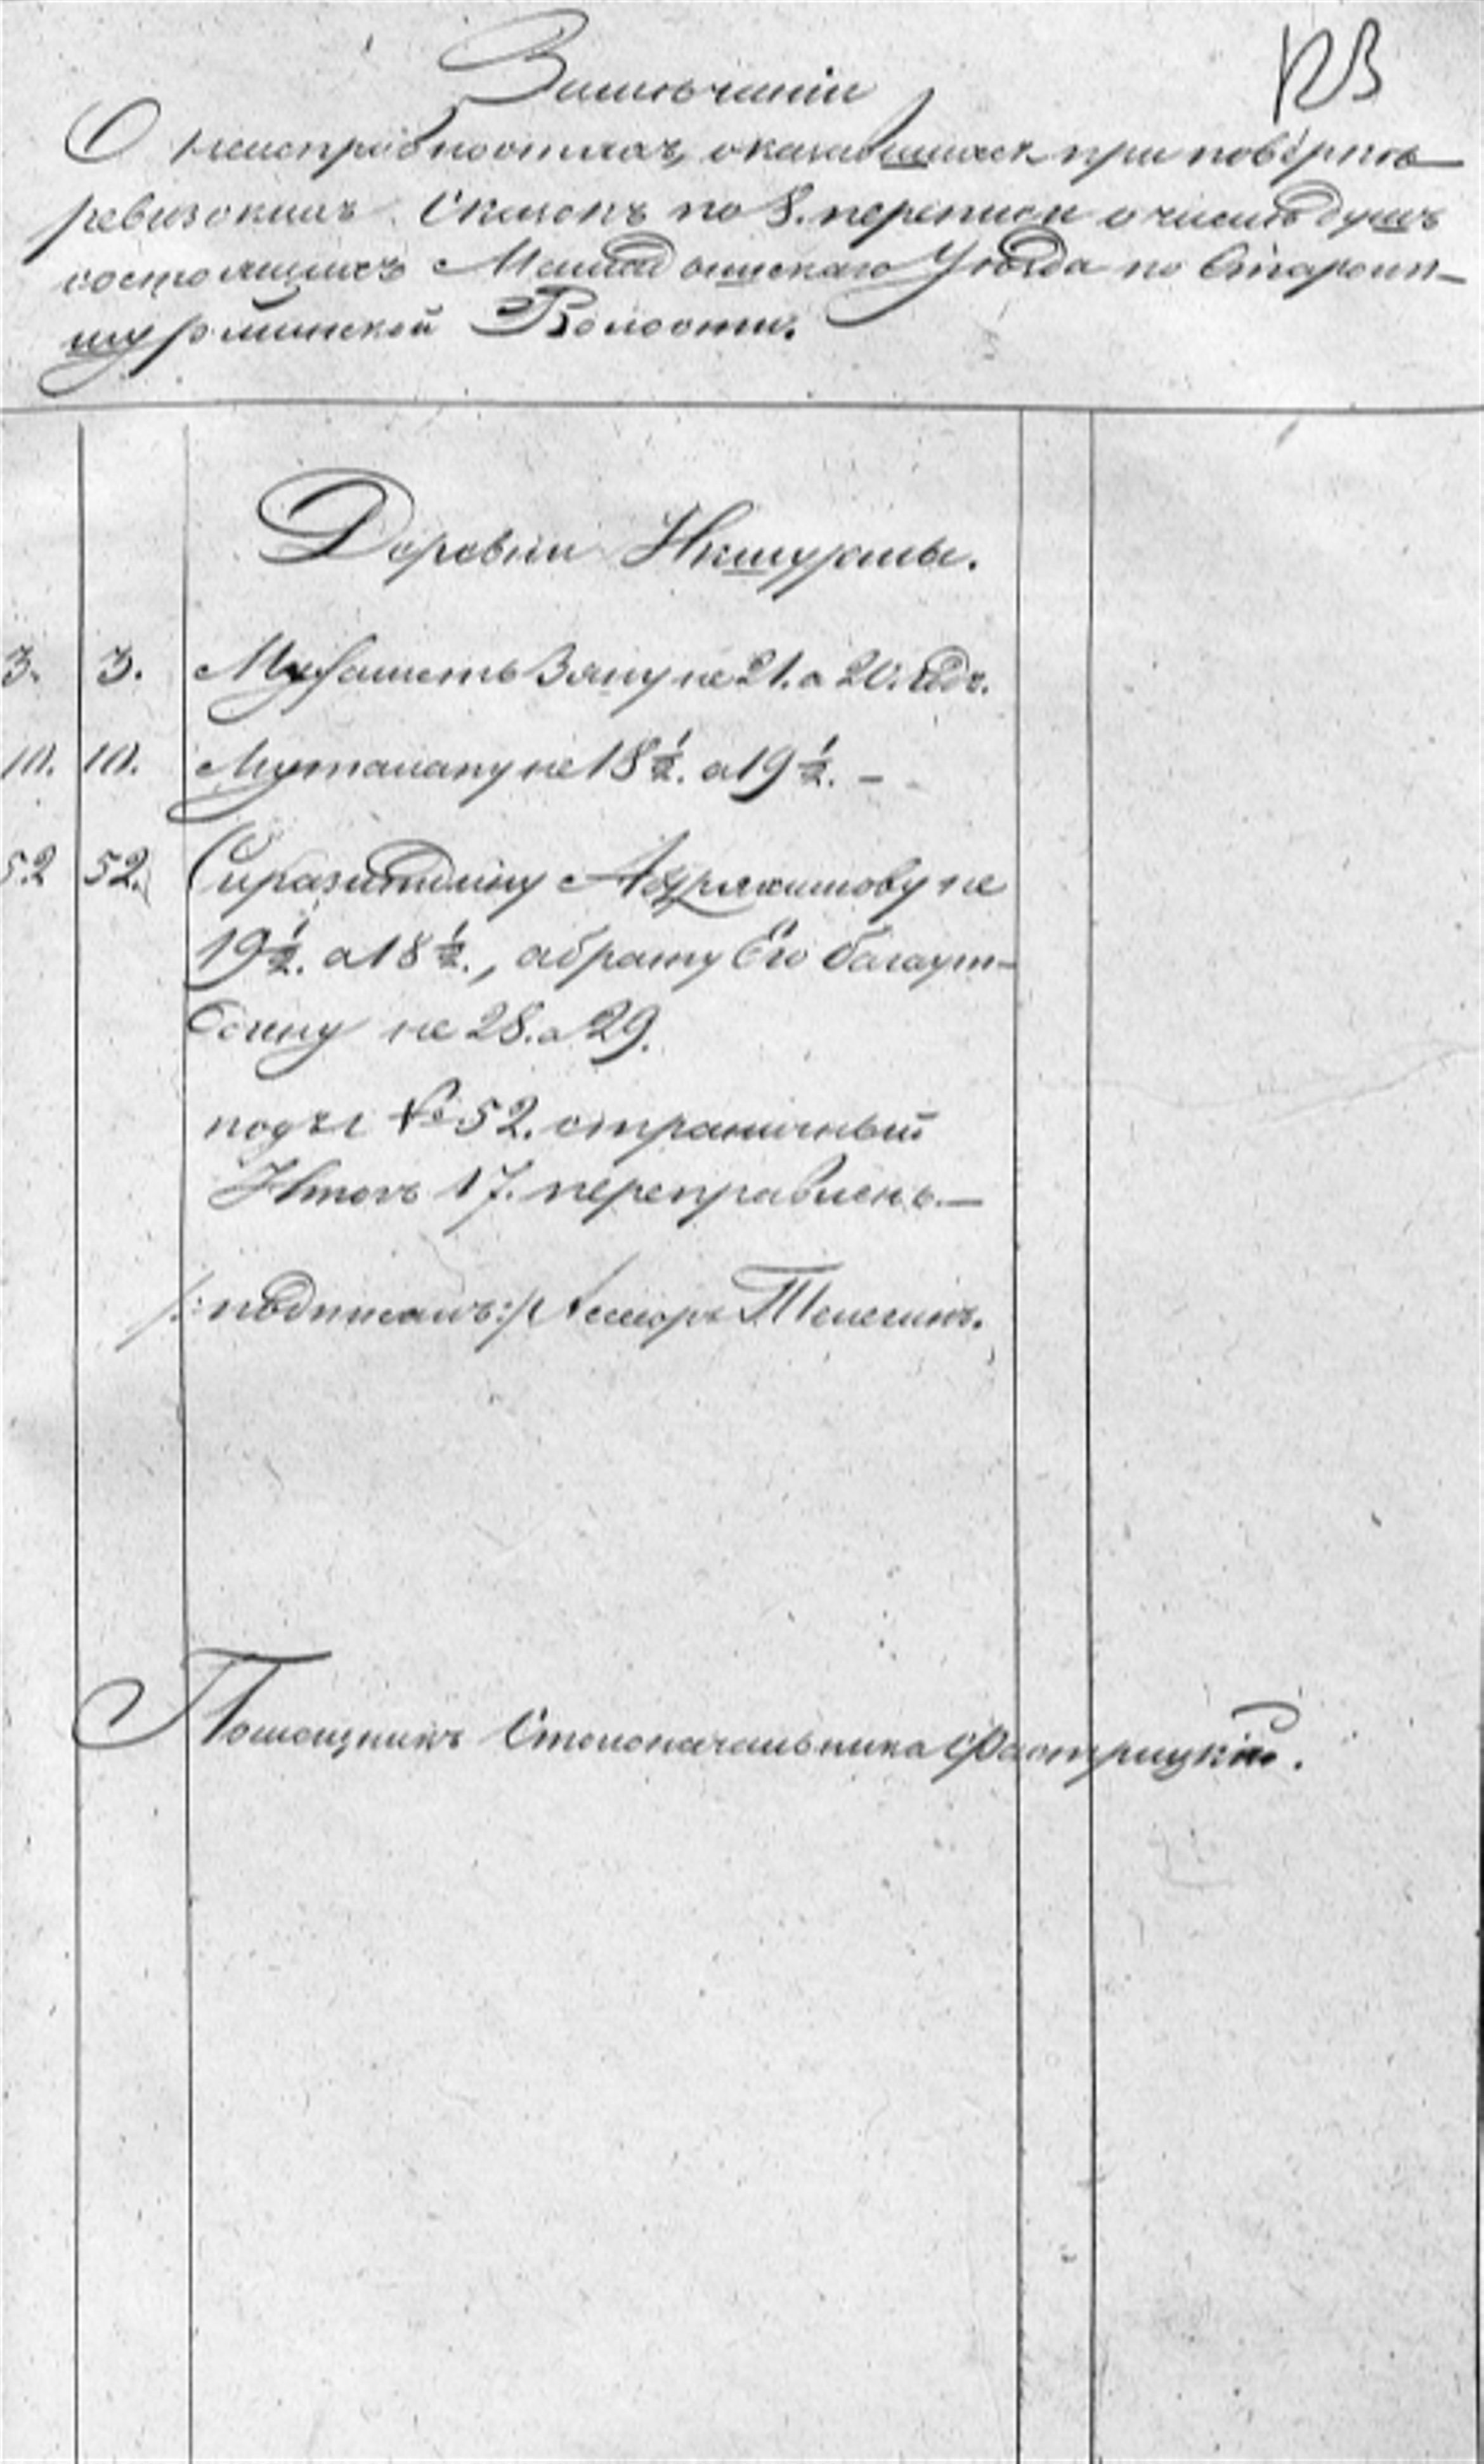 123
Замѣчаніи
О неисправностяхъ, оказавшихся при повѣркѣ
ревизскихъ Сказокъ по 8. переписи о числѣ душъ
состоящихъ Мамадышскаго Уѣзда по Староик-
шурминской Волости.
Деревни Икшурмы.
3. 3. Мухаметь Зяпу не 21. а 20. годъ.
10. 10. Муталапу не 18 ½. а 19 ½. –
52 52. Сиразитдину не
19 ½. а 18 ½., а брату Его багаут-
дину не 28. а 29.
подъ № 52. страничный
Итогъ 17. переправленъ. —
/: подписалъ:/ Асессоръ Телегинъ.
Помощникъ Столоначальника